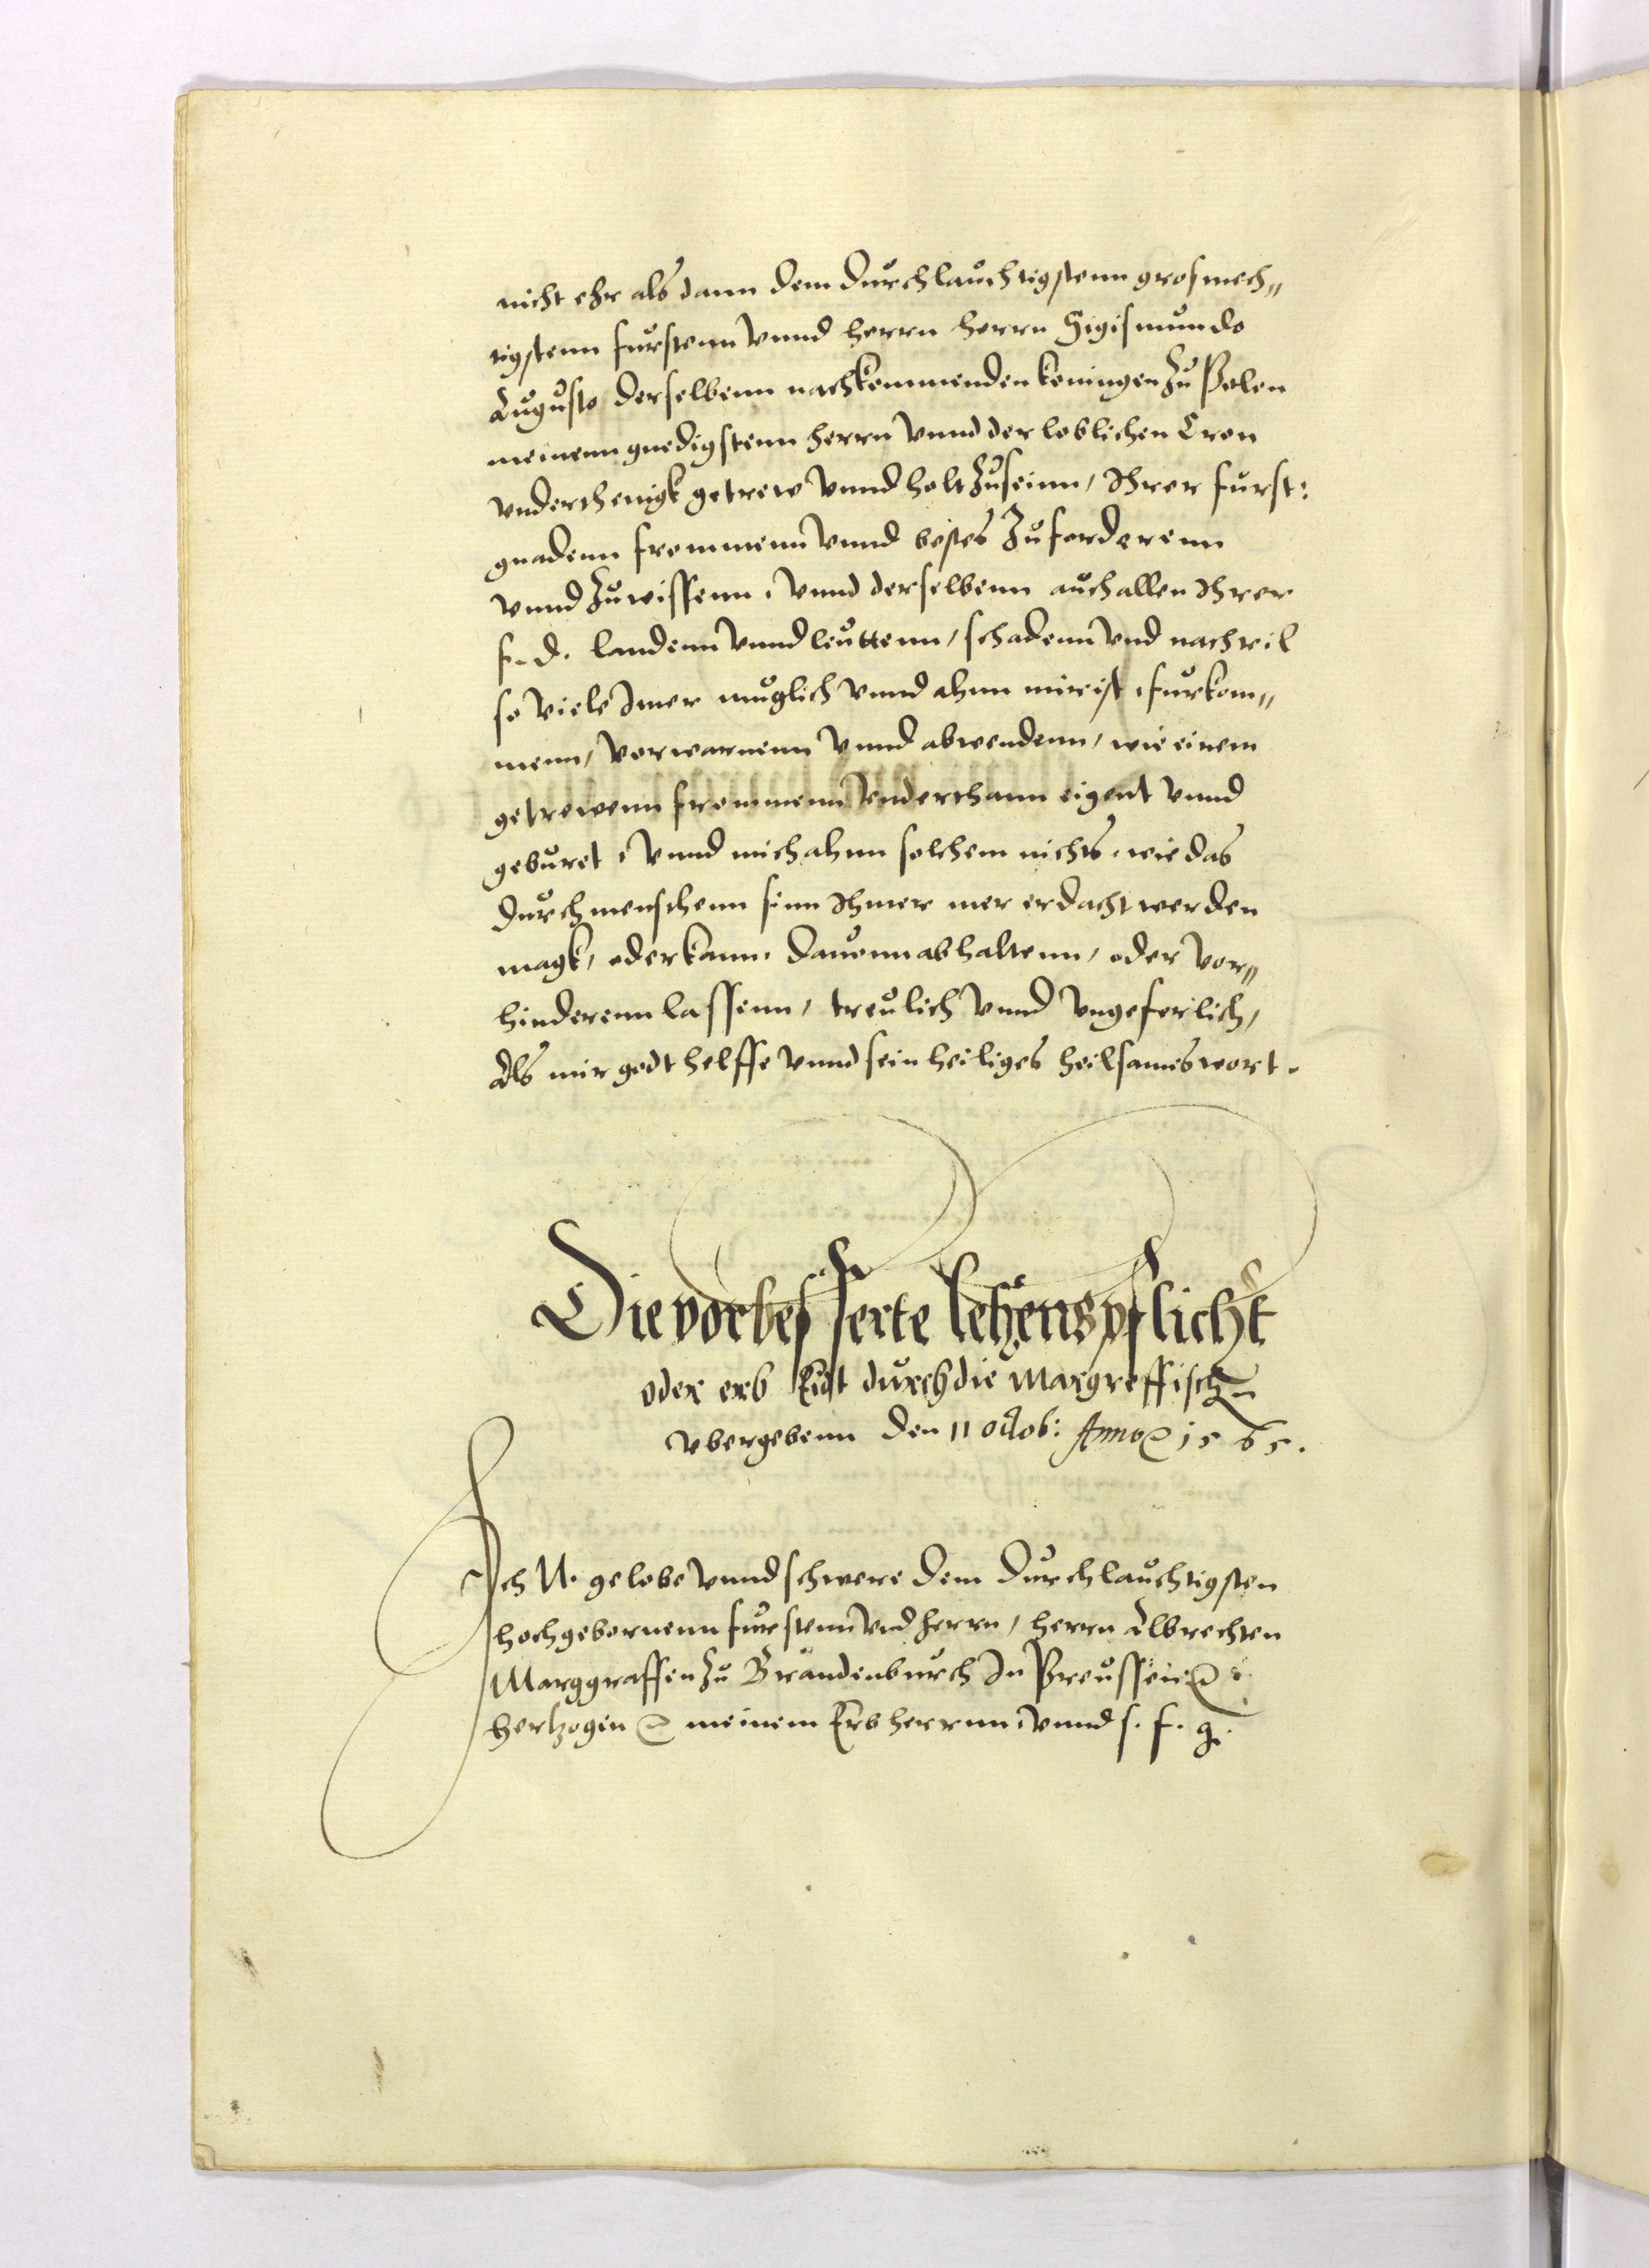 nicht ehr als dann dem durchlauchtigstenn grosmech„
tigstenn furstenn vnnd herrn herrn Sigismundo
Augusto derselbenn nachkommenden koningen zu Polen
meinenn gnedigstenn herrn vnnd der loblichen Cron
vnderthenigk getrew vnnd holt zuseinn, Ihrer furst:
gnadenn frommenn vnnd bestes zuforderenn
vnnd zuwissenn, vnnd derselbenn auch allen Ihrer
f. d. landenn vnnd leuttenn, schadenn vnd nachteil
so viele Imer muglich vnnd ahnn mir ist, furkom„
menn, vorwarnenn vnnd abwendenn, wie einem
getrewenn frommenn vnderthann eigent vnnd
geburet, vnnd mich ahnn solchem nichts, wie das
durch menschenn sinn Ihmer mer erdacht werden
magk, oder kann, dauonn abhaltenn, oder vor„
hinderenn lassenn, treulich vnnd vngeferlich,
Als mir godt helffe vnnd sein heiliges heilsames wort.
Die vorbesserte lehenspflicht
oder erb Eidt durch die Margreffischn
vbergebenn den 11 octob: Anno 1565.
Ich N. gelobe vnnd schwere dem Durchlauchtigsten
hochgebornenn furstenn vnd herrn, herrn Albrechten
Marggraffen zu Brandenburch In Preussen
hertzogen meinem Erbherrnn, vnnd s. f. g.